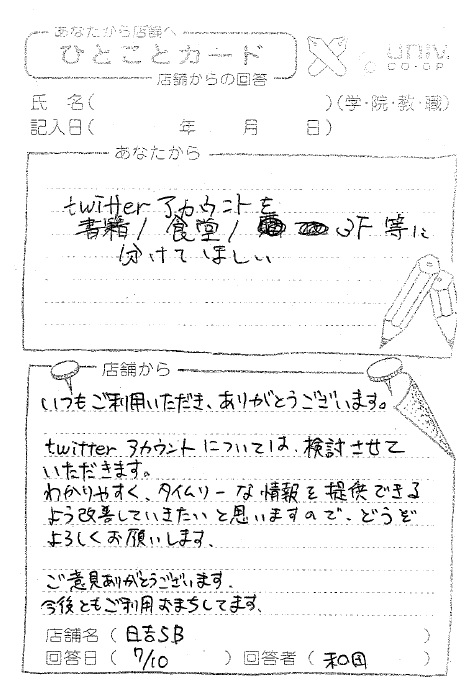 あなたから店舗へ
ひとことカード
店舗からの回答
univ.
CO-OP
氏 名( )(学・院・教・職)
記入日( 年 月 日)
あなたから
twitterアカウントを
書籍/食堂/ 3F等に
分けてほしい
店舗から
いつもご利用いただき、ありがとうございます。
twitterアカウントについては、検討させて
いただきます。
わかりやすく、タイムリーな情報を提供できる
よう改善していきたいと思いますので、どうぞ
よろしくお願いします。
ご意見ありがとうございます。
今後ともご利用おまちしてます。
店舗名(日吉SB )
回答日( 7/10 )回答者( 和田 )